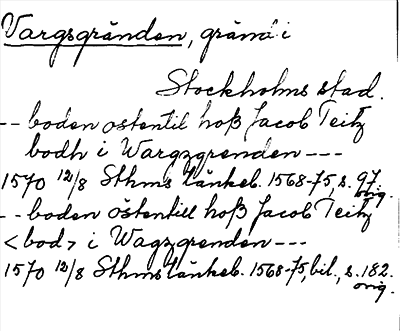 Vargsgränden, gränd i
Stockholms stad.
-- boden ostentil hoß Jacob Teitz
bodh i Wargzgrenden ---
1570 12/8 Sthms tänkeb. 1568-75, s. 97. orig.
-- boden östentill hoß Jacob Teitz
<bod> i Wagzgrenden ---
1570 12/8 Sthms tänkeb. 1568-75, bil., s. 182. orig.